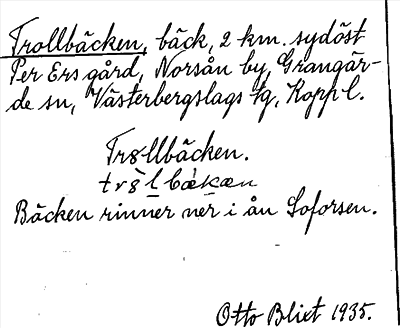 Trollbäcken, bäck, 2 km. sydöst
Per Ers gård, Norsån by, Grangär-
de sn, Västerbergslags tg, Kopp l.
Trollbäcken.
Bäcken rinner ner i ån Soforsen.
Otto Blixt 1935.